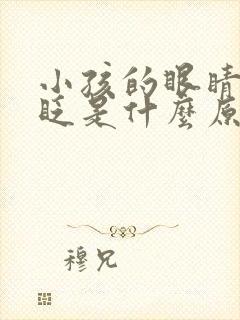 小孩的眼睛
眨是什麼原
穆兄